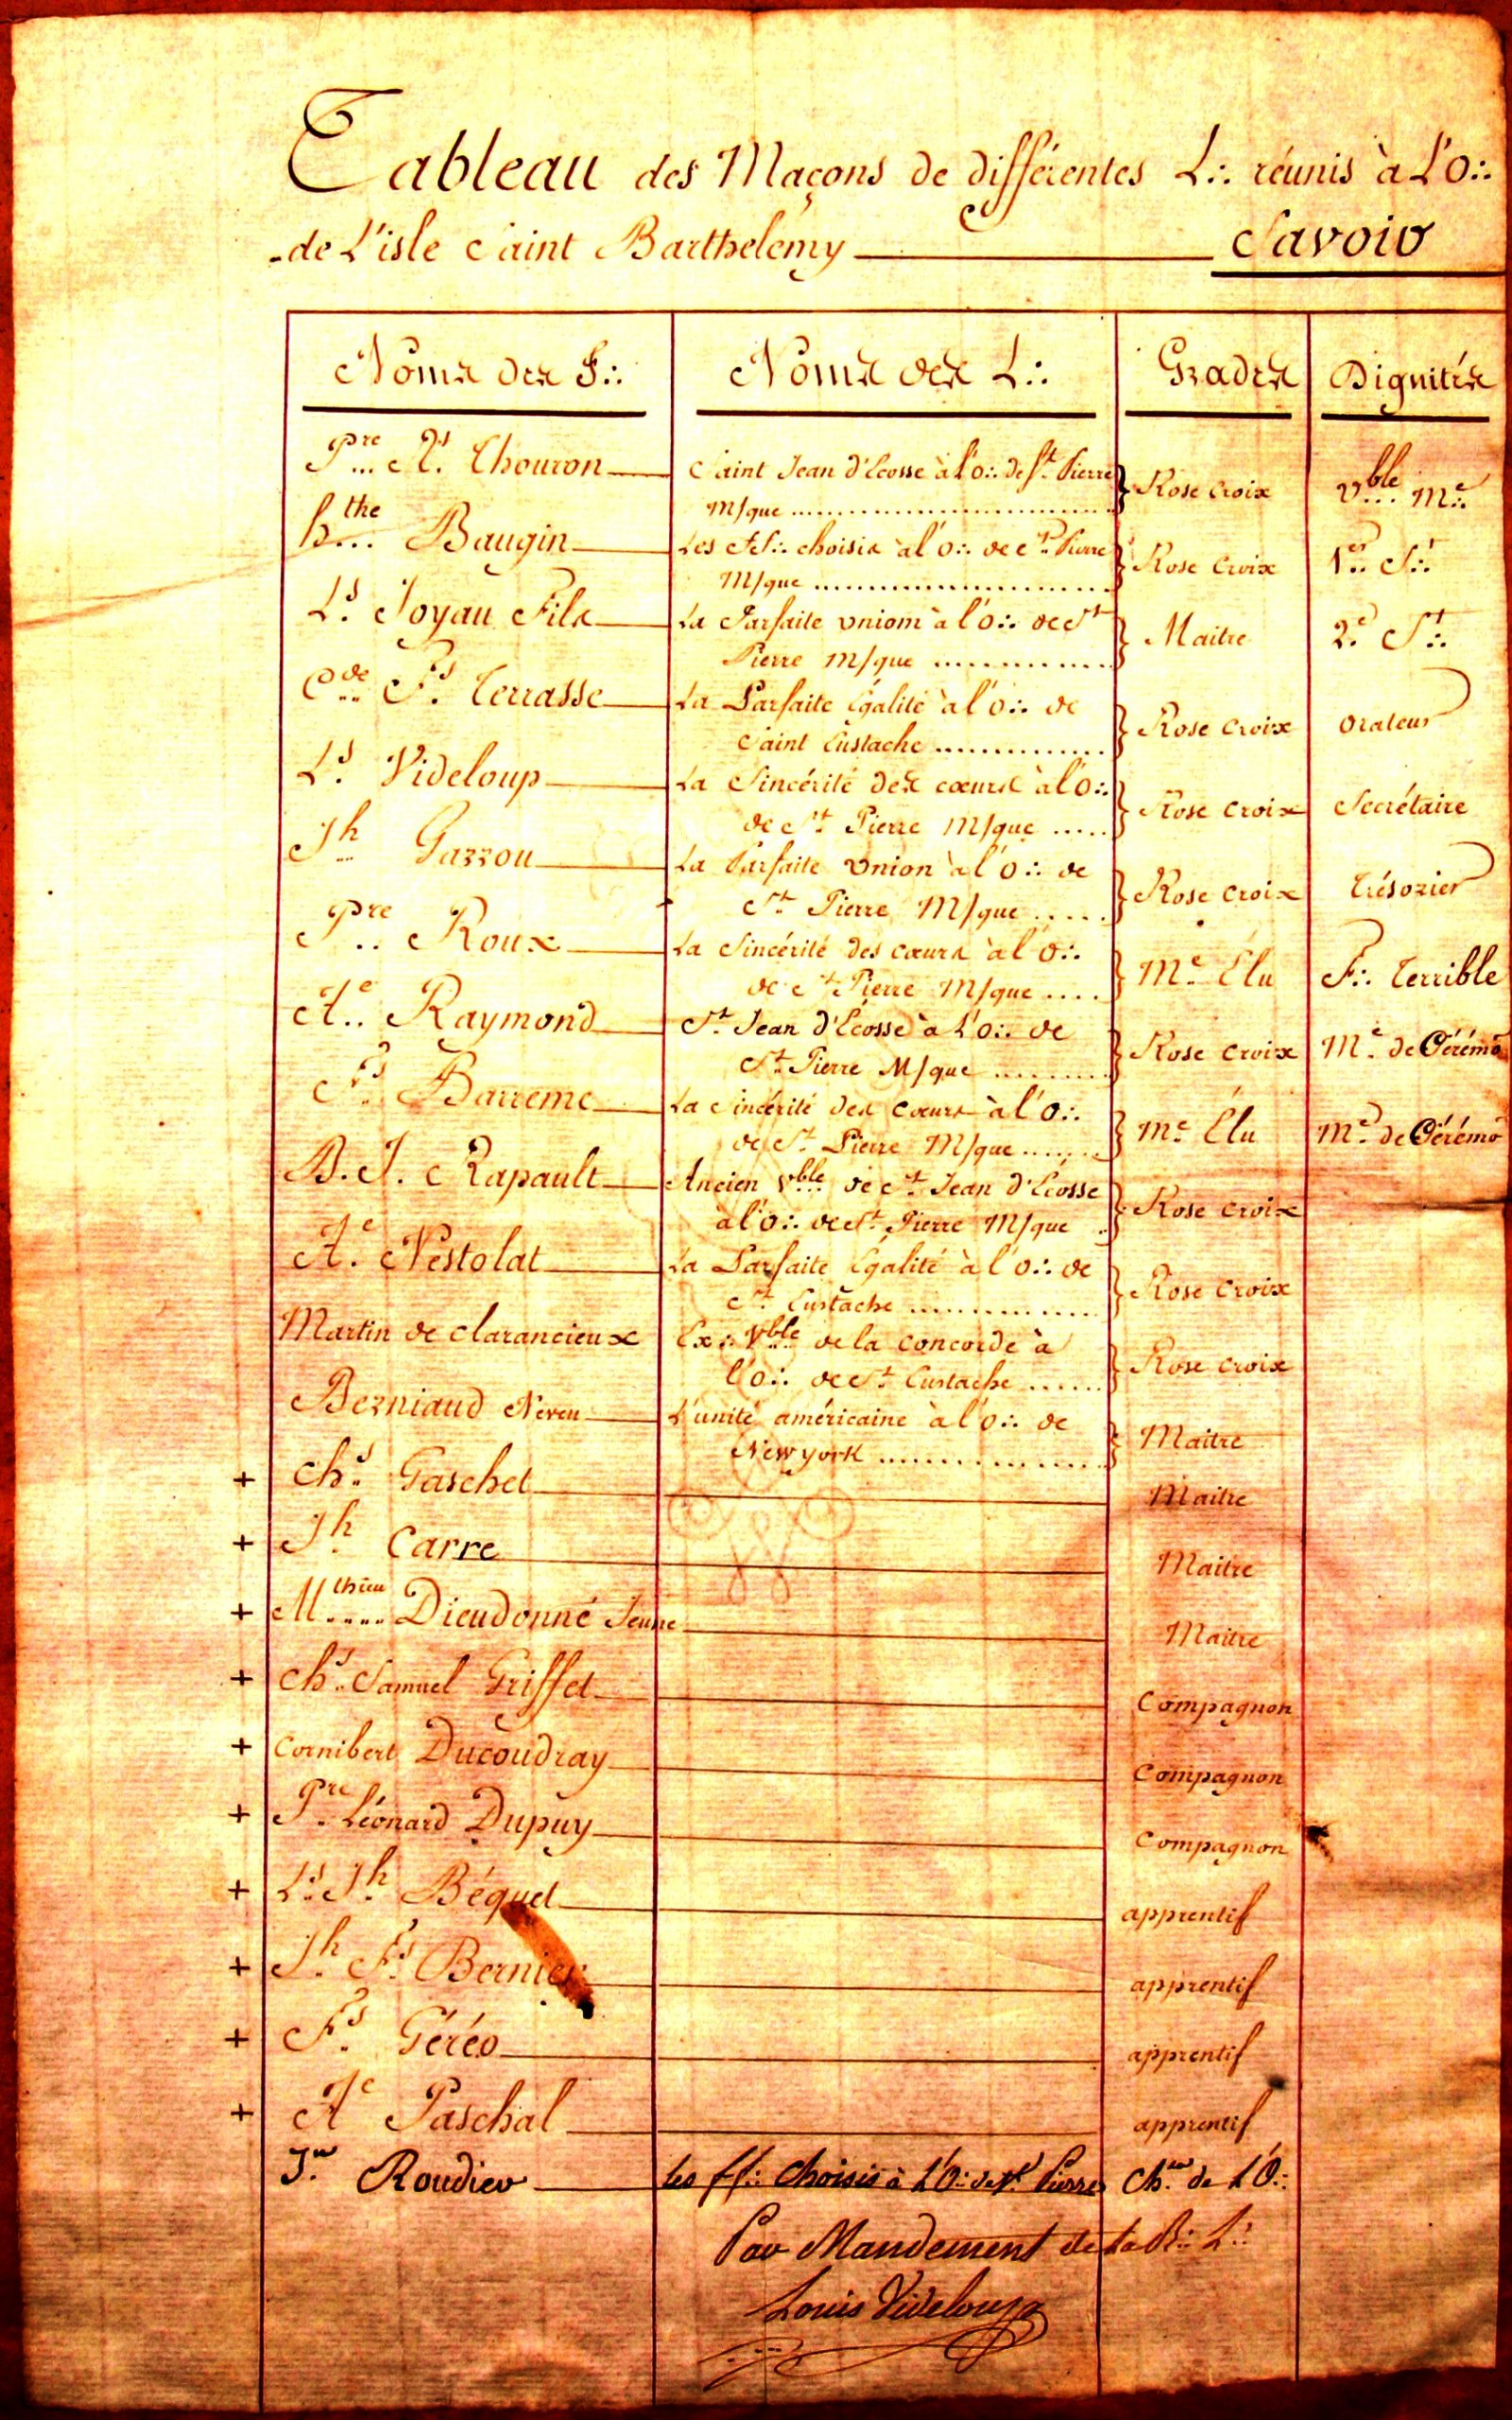 Tableau des Maçons de différentes L∴ réunis à L'O∴
de L'isle Saint Barthelemy Savoir
Noms des F∴ Noms des L∴ Grades Dignités
Pre... As. Chouron Saint Jean d'Ecosse à l'o∴ de St. Pierre
M/que Rose Croix Vble... Me∴
Bthe... Baugin Les ff∴ choisis à l'o∴ de St. Pierre
M/que Rose Croix 1er.. St∴
Ls. Joyau Fils La Parfaite union à l'o∴ de St
Pierre M/que Maitre 2e. St∴
Cde.. Fs. Terrasse La Parfaite Égalité à l'o∴ de
Saint Eustache Rose Croix Orateur
Ls. Videloup La Sincérité des cœurs à l'o∴
de St. Pierre M/que Rose Croix Secrétaire
Jh.. Gazzou La Parfaite union à l'o∴ de
St. Pierre M/que Rose Croix trésorier
Pre.. Roux La Sincérité des cœurs à l'o∴
de St. Pierre M/que Me. Élu F∴ Terrible
Ae.. Raymond St. Jean d'Écosse à L'o∴ de
St. Pierre M/que Rose Croix Me. de Cérémo
Fs.. Barreme La Sincérité des Cœurs à l'o∴
de St. Pierre M/que Me. Élu Me. de Cérémo
B. J. Rapault Ancien Vble... de St. Jean d'Écosse
à l'o∴ de St. Pierre M/que Rose Croix
Ae. Nestolat La Parfaite Égalité à l'o∴ de
St. Eustache Rose Croix
Martin de Clarancieux Ex∴ Vble de la concorde à
l'o∴ de St. Eustache Rose Croix
Berniaud Neveu L'unité américaine à l'o∴ de
New york Maitre
+ Chs. Gaschet Maitre
+ Jh. Carre Maitre
+ Mthieu.... Dieudonné Jeune Maitre
+ Chs. Samuel Griffet Compagnon
+ Cornibert Ducoudray Compagnon
+ Pre. Léonard Dupuy Compagnon
+ Ls. Jh. Béquet apprentif
+ Jh. Fs. Bernier apprentif
+ Fs. Géréo apprentif
+ Ae Paschal apprentif
Jn. Roudier Les ff∴ Choisis à L'O∴ de St. Pierre Cher. de L'O∴
Par Mandement de la R∴ L∴
Louis Videloup